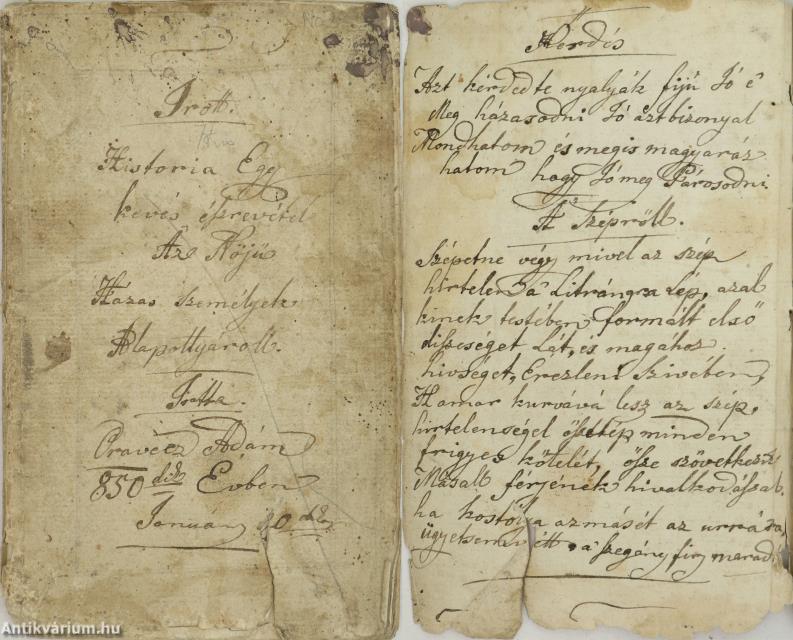 Irott.
Historia Egy
kevés észrevétel
Az Nőjű
Házas Személyek
Alapottyáról.
Irtta.
Oravecz Adám
850 dik Évben
Január 10 dik
Kérdés
Azt kérdedte nyalyák fijú Jó é
Meg házasodni Jó azt bizonyal
Mondhatom és megis magyaráz
hatom hogy Jó meg Párosodni
A Szépröll.
Szépetne végy mivel az szép
hirtelen a Litrángra Lép, azal
kinek testében formált első
diszeséget Lát, és magához
hivséget, Erezleni Szivében,
Hamar kurvává lesz az szép,
hirtelenségel öszetép minden
frigyes kötelét, ősze szövetkezni
Másall férjének hivalkodással,
ha kostólya az mását az urrá
ügyetsem vétt, a Szegény firj marad.
Antikvárium.hu